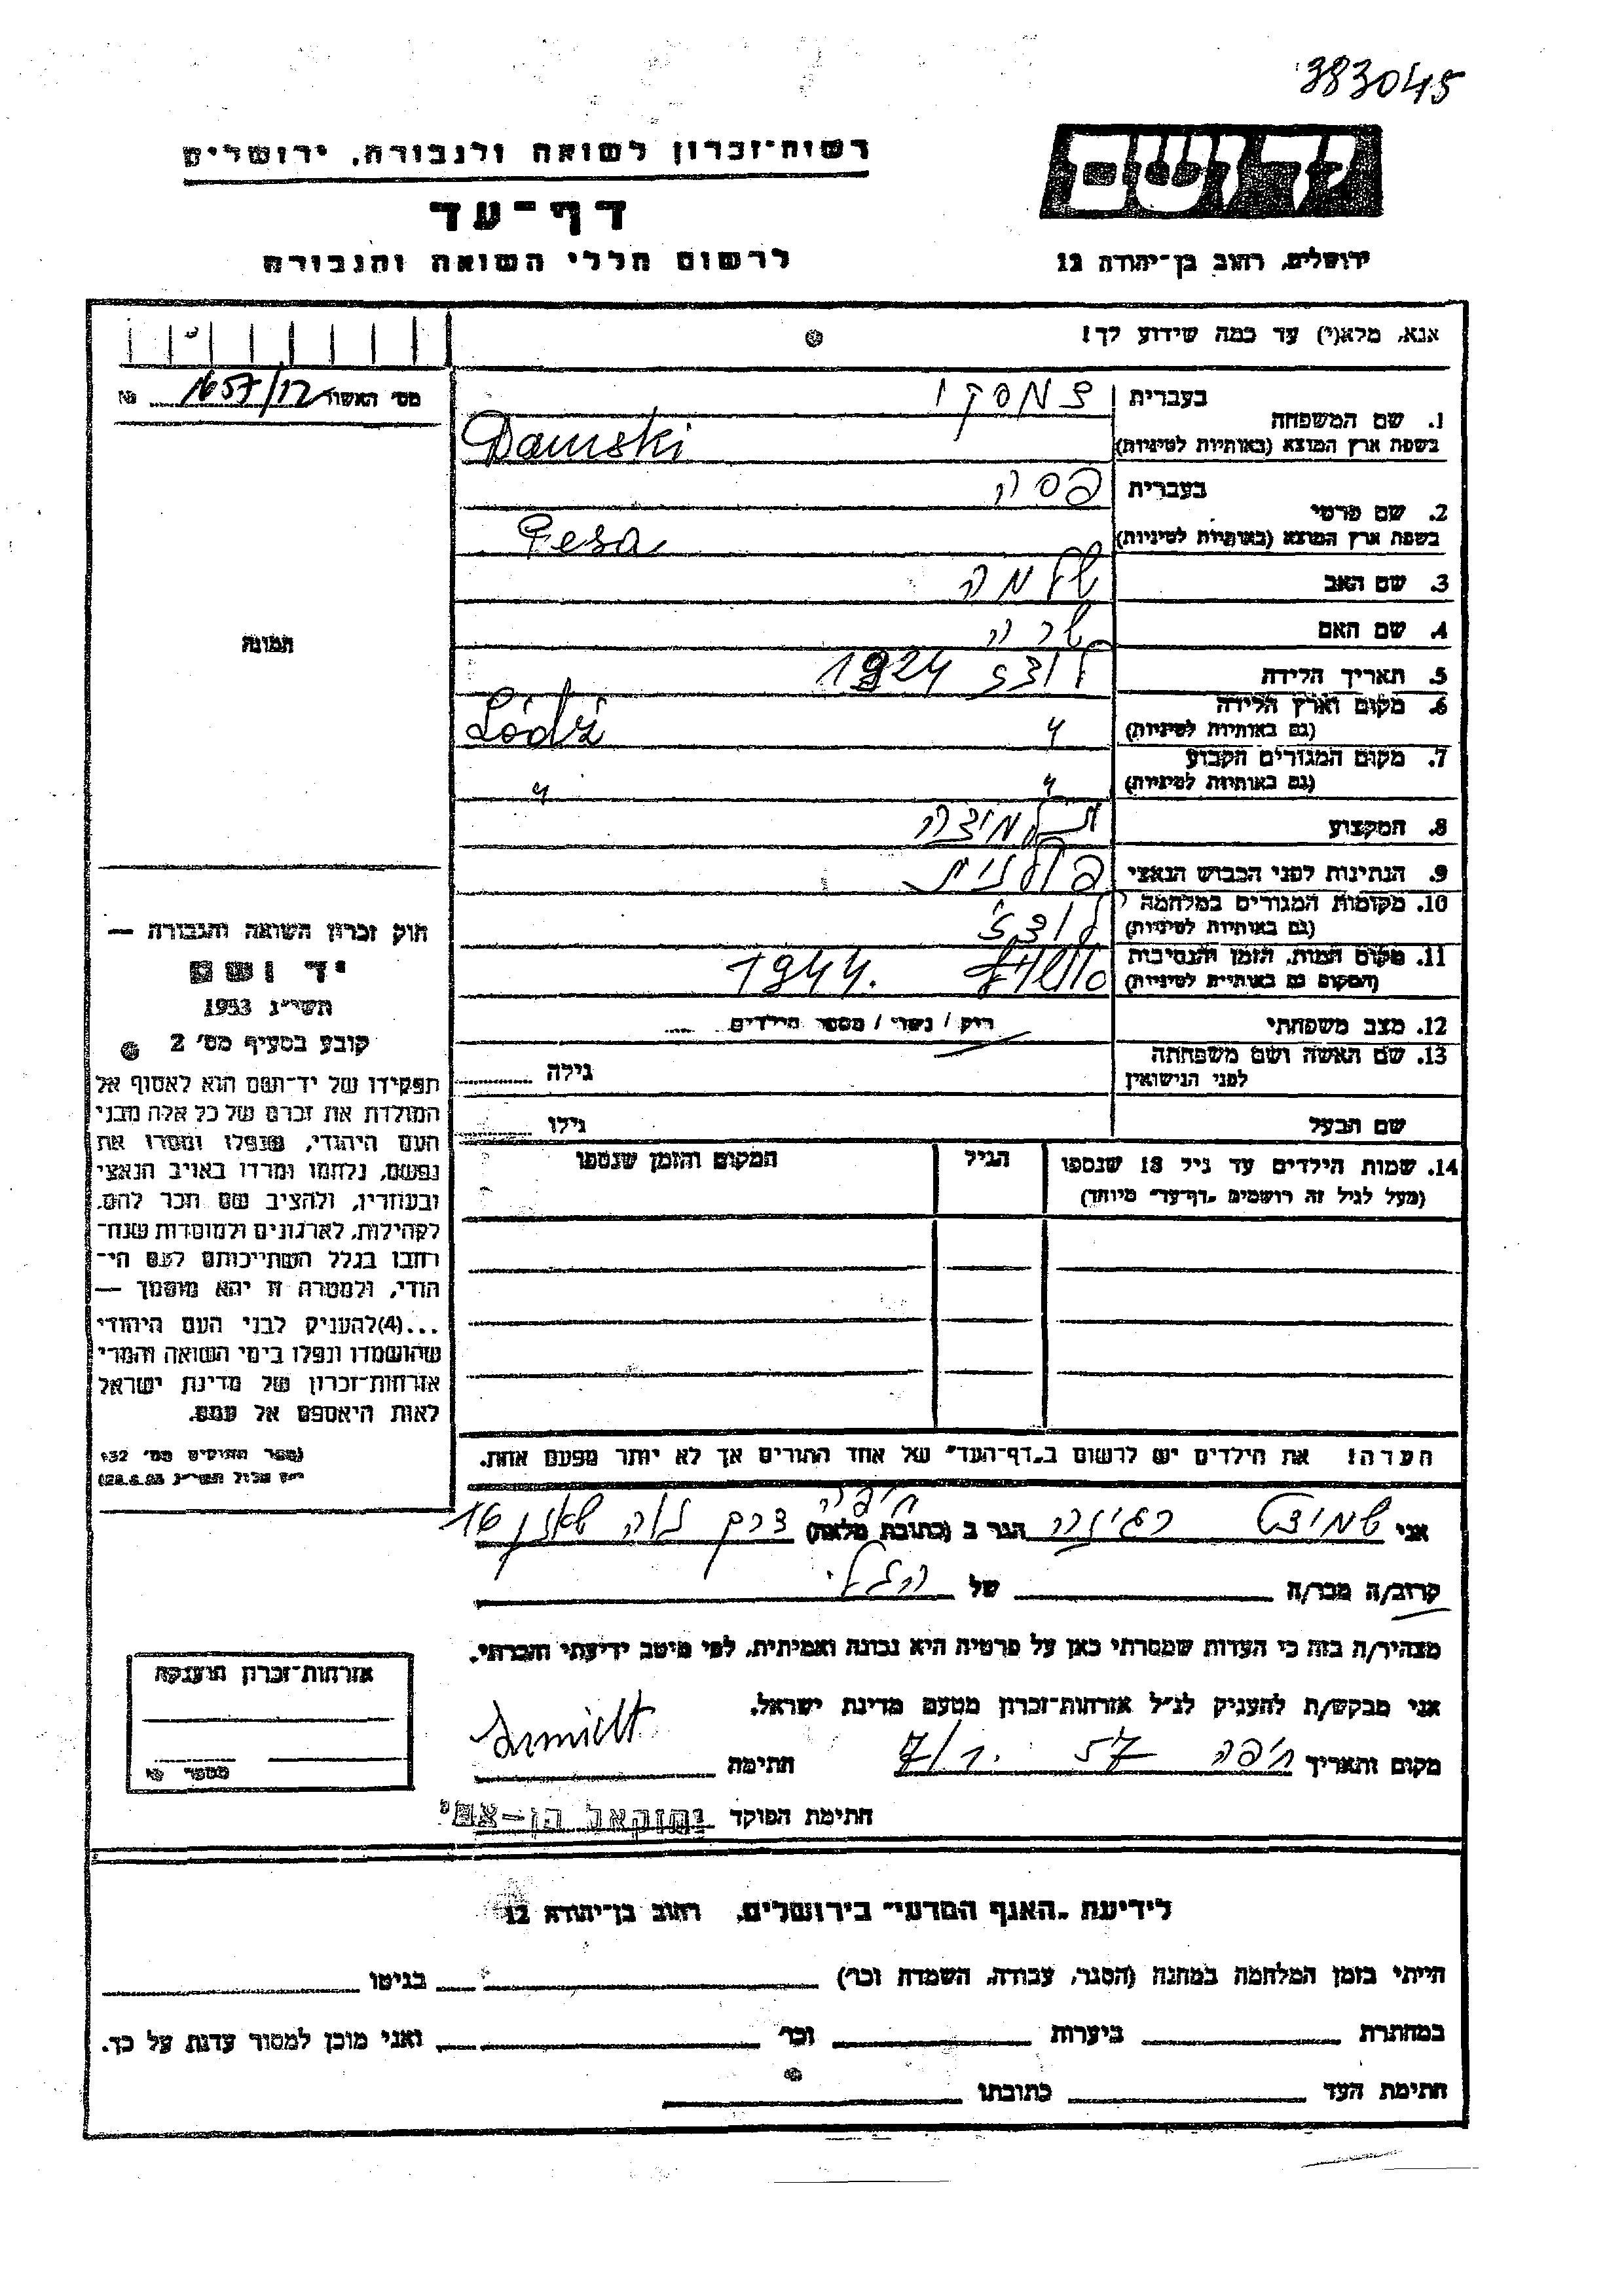 383045
יד ושם
רשות-זכרון לשואה ולגבורה, ירושלים
דף-עד
לרשום חללי השואה והגבורה
ירושלים, רחוב בן-יהודה 12
אנא, מלא(י) עד כמה שידוע לך!
מס' האשור 1657/12 №
1. שם המשפחה
בעברית
בשפת ארץ המוצא (באותיות לטיניות)
Damski
2. שם פרטי
בעברית פסה
בשפת ארץ המוצא (באותיות לטיניות) Pesa
3. שם האב שלמה
4. שם האם שרה
5. תאריך הלידה לודז 1924
6. מקום וארץ הלידה
(גם באותיות לטיניות) " Łódź
7. מקום המגורים הקבוע
(גם באותיות לטיניות) " "
8. המקצוע תלמידה
9. הנתינות לפני הכבוש הנאצי פולנית
10. מקומות המגורים במלחמה
(גם באותיות לטיניות) לודז'
11. מקום המות, הזמן והנסיבות
(המקום גם באותיות לטיניות) 1944.
12. מצב משפחתי רוק / נשוי / מספר הילדים
13. שם האשה ושם משפחתה
לפני הנישואין
גילה
שם הבעל גילו
14. שמות הילדים עד גיל 18 שנספו
(מעל לגיל זה רושמים "דף-עד" מיוחד)
הגיל
המקום והזמן שנספו
הערה! את הילדים יש לרשום ב"דף-העד" של אחד ההורים אך לא יותר מפעם אחת.
תמונה
חוק זכרון השואה והגבורה —
יד ושם
תשי"ג 1953
קובע בסעיף מס' 2
תפקידו של יד-ושם הוא לאסוף אל
המולדת את זכרם של כל אלה מבני
העם היהודי, שנפלו ומסרו את
נפשם, נלחמו ומרדו באויב הנאצי
ובעוזריו, ולהציב שם וזכר להם,
לקהילות, לארגונים ולמוסדות שנח-
רבו בגלל השתייכותם לעם הי-
הודי, ולמטרה זו יהא מוסמך —
...(4) להעניק לבני העם היהודי
שהושמדו ונפלו בימי השואה והמרי
אזרחות-זכרון של מדינת ישראל
לאות היאספם אל עמם.
(ספר החוקים מס' 132
י"ז אלול תשי"ג 28.8.53)
אני שמידט רגינה הגר ב (כתובת מלאה) חיפה דרך נוה שאנן 16
קרוב/ה מכר/ה של
מצהיר/ה בזה כי העדות שמסרתי כאן על פרטיה היא נכונה ואמיתית, לפי מיטב ידיעתי והכרתי.
אני מבקש/ת להעניק לנ"ל אזרחות-זכרון מטעם מדינת ישראל.
מקום ותאריך חיפה 57 חתימה
חתימת הפוקד
אזרחות-זכרון הוענקה
מספר №
לידיעת "האגף המדעי" בירושלים, רחוב בן-יהודה 12
הייתי בזמן המלחמה במחנה (הסגר, עבודה, השמדה וכו') בגיטו
במחתרת ביערות וכו' ואני מוכן למסור עדות על כך.
חתימת העד כתובתו